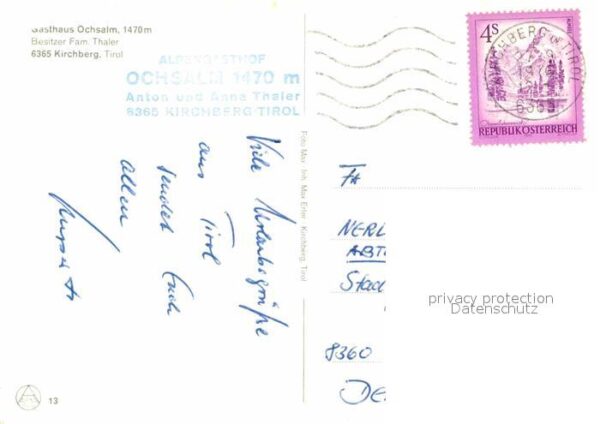 Gasthaus Ochsalm, 1470m
Besitzer Fam. Thaler
6365 Kirchberg, Tirol
ALPENGASTHOF
OCHSALM 1470 m
Anton und Anna Thaler
6365 KIRCHBERG/TIROL
4S
REPUBLIK ÖSTERREICH
KIRCHBERG TIROL
Viele Urlaubsgrüße
aus Tirol
sendet Euch
allen
Foto Max Inh. Max Erler Kirchberg Tirol
FA
NERL
ABT
Stad
8360
DE
privacy protection
Datenschutz
13